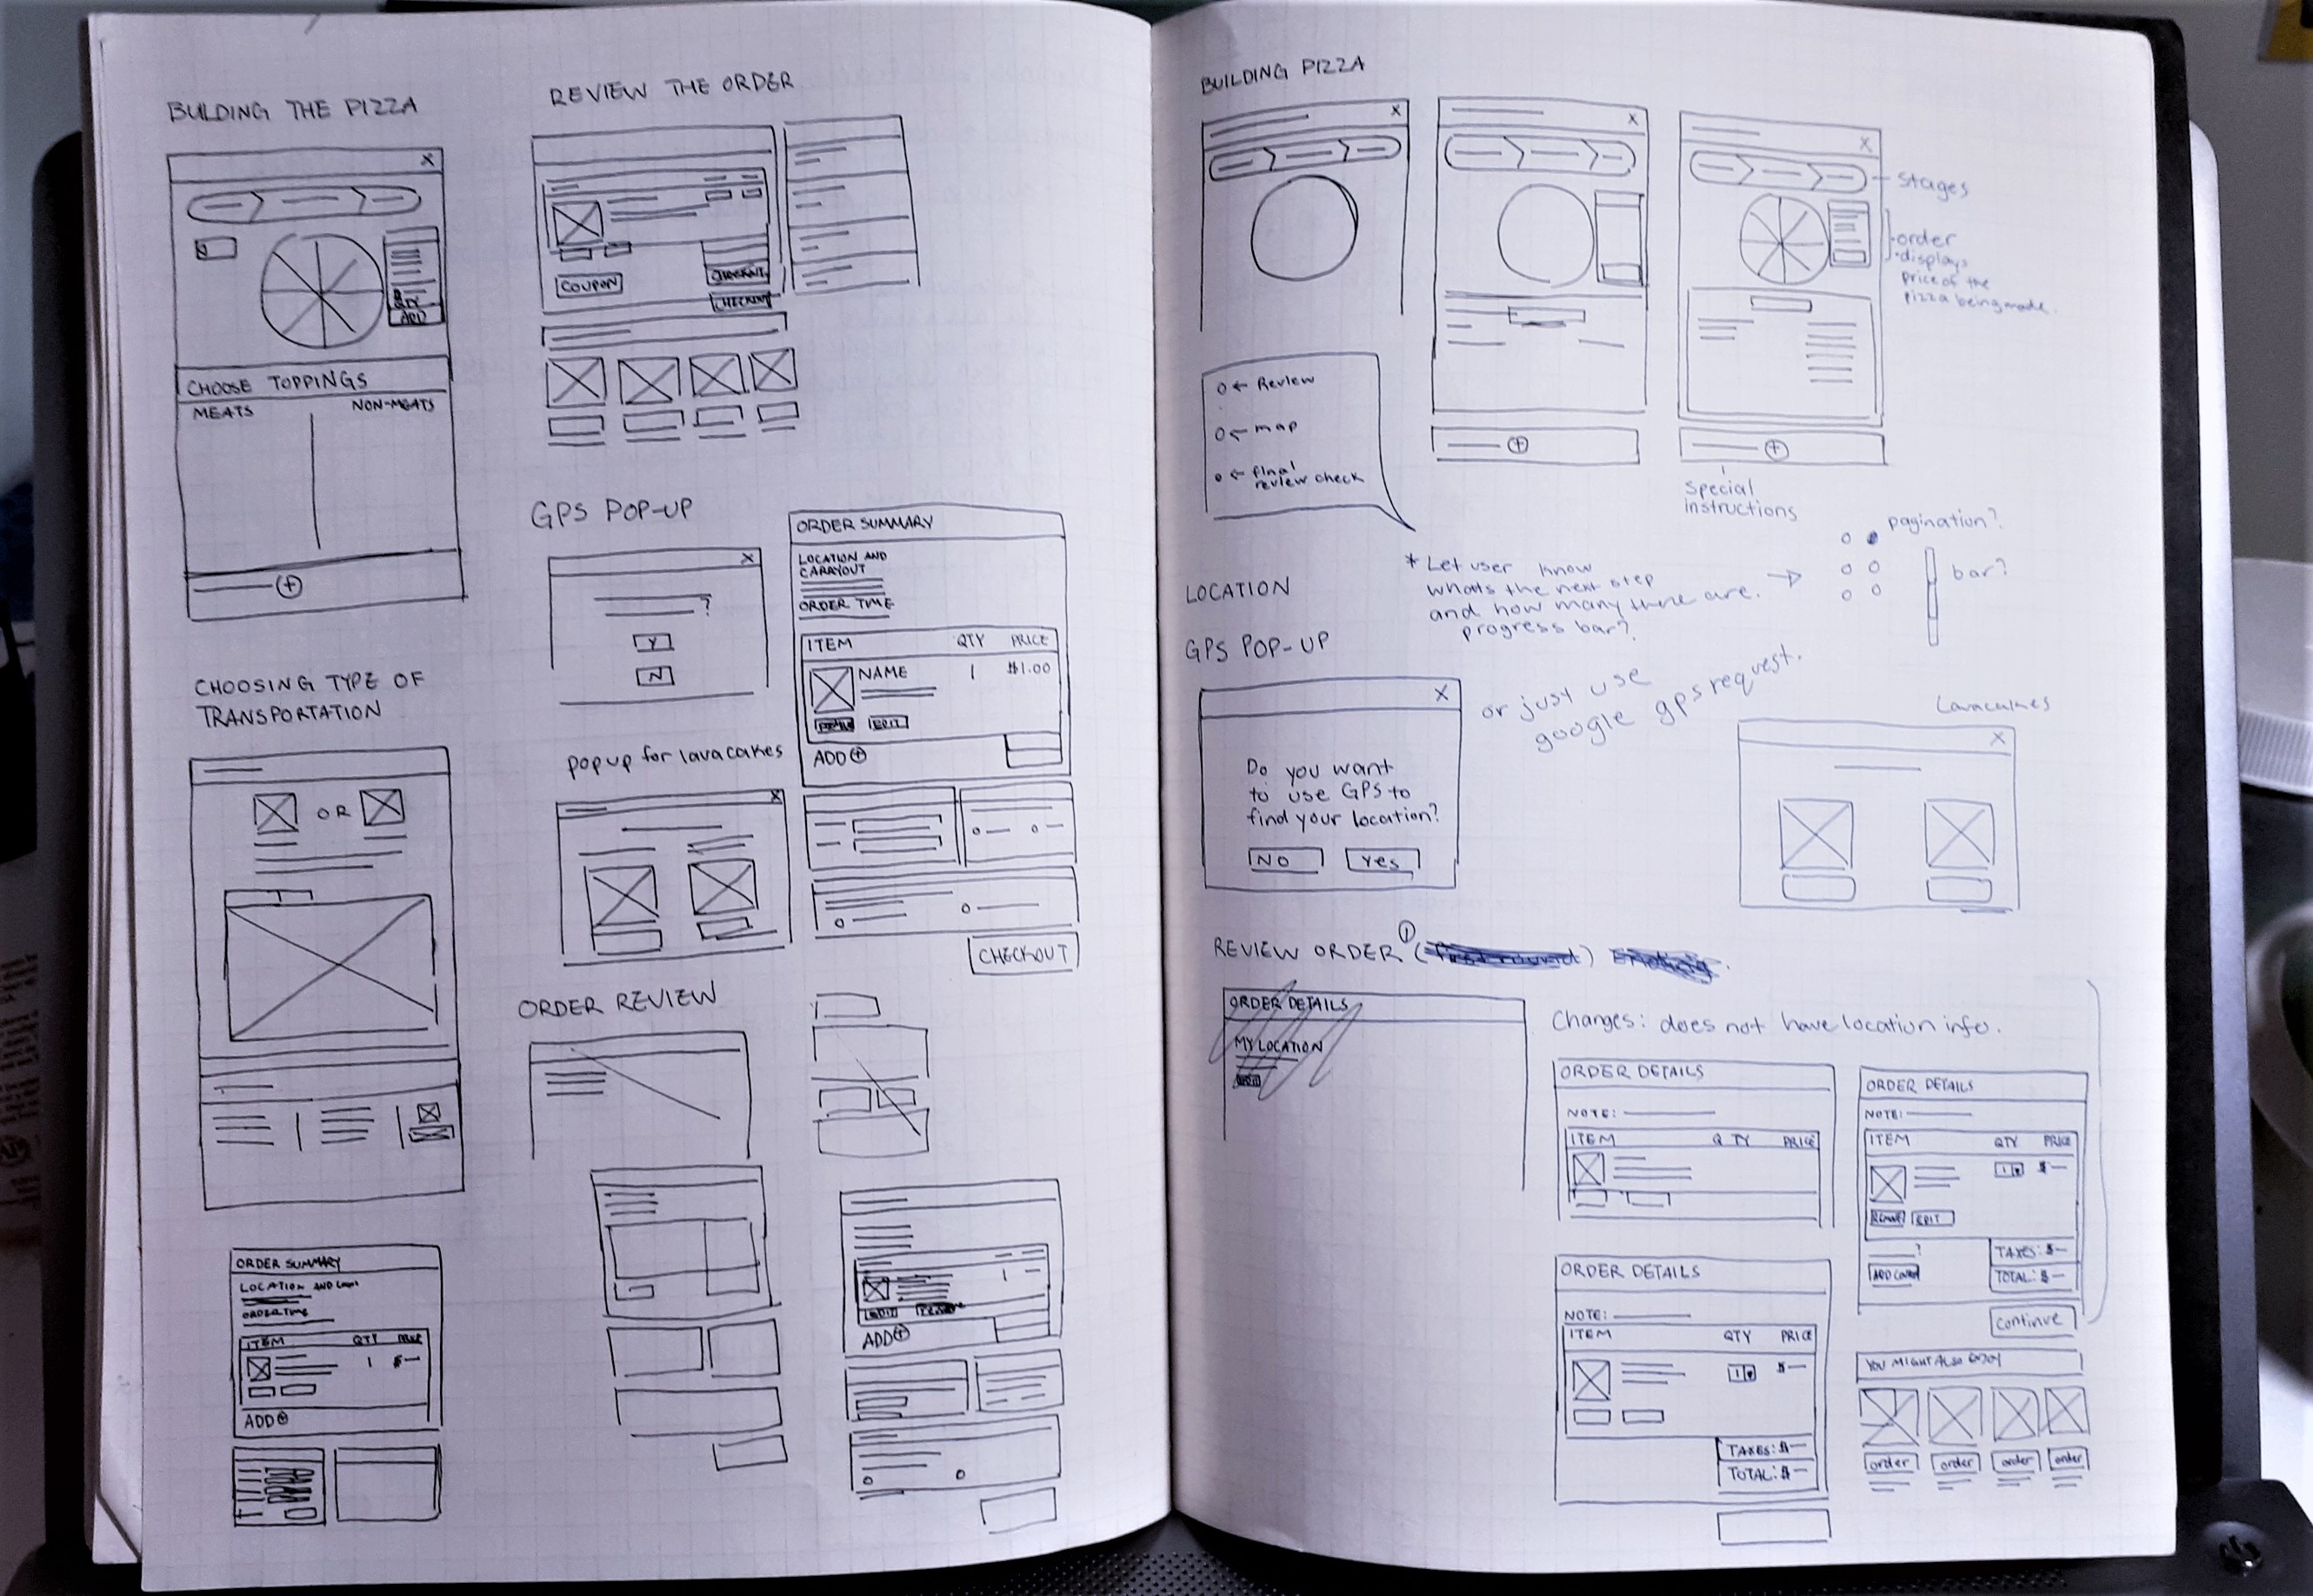 BULDING THE PIZZA
X
QTY
ADD
CHOOSE TOPPINGS
MEATS
NON-MEATS
CHOOSING TYPE OF
TRANSPORTATION
OR
ORDER SUMMARY
LOCATION AND
ORDER TIME
ITEM QTY PRICE
1 $—
ADD
REVIEW THE ORDER
COUPON
CHECKOUT
CHECKOUT
GPS POP-UP
X
?
Y
N
popup for lavacakes
X
ORDER SUMMARY
LOCATION AND
CARRYOUT
ORDER TIME
ITEM QTY PRICE
NAME 1 $1.00
EDIT
ADD
CHECKOUT
ORDER REVIEW
1
EDIT
ADD
BUILDING PIZZA
X
X
X
stages
order
displays
price of the
pizza being made.
special
instructions
← Review
← map
← final
review check
LOCATION
* Let user know
whats the next step
and how many there are.
progress bar?
pagination?
bar?
GPS POP-UP
X
Do you want
to use GPS to
find your location?
NO
Yes
or just use
google gps request.
Lavacakes
X
REVIEW ORDER ①
ORDER DETAILS
MY LOCATION
Changes: does not have location info.
ORDER DETAILS
NOTE:
ITEM QTY PRICE
ORDER DETAILS
NOTE:
ITEM QTY PRICE
1 $—
REMOVE EDIT
?
TAXES: $—
TOTAL: $—
Continue
ORDER DETAILS
NOTE:
ITEM QTY PRICE
1 $—
TAXES: $—
TOTAL: $—
YOU MIGHT ALSO ENJOY
order order order order